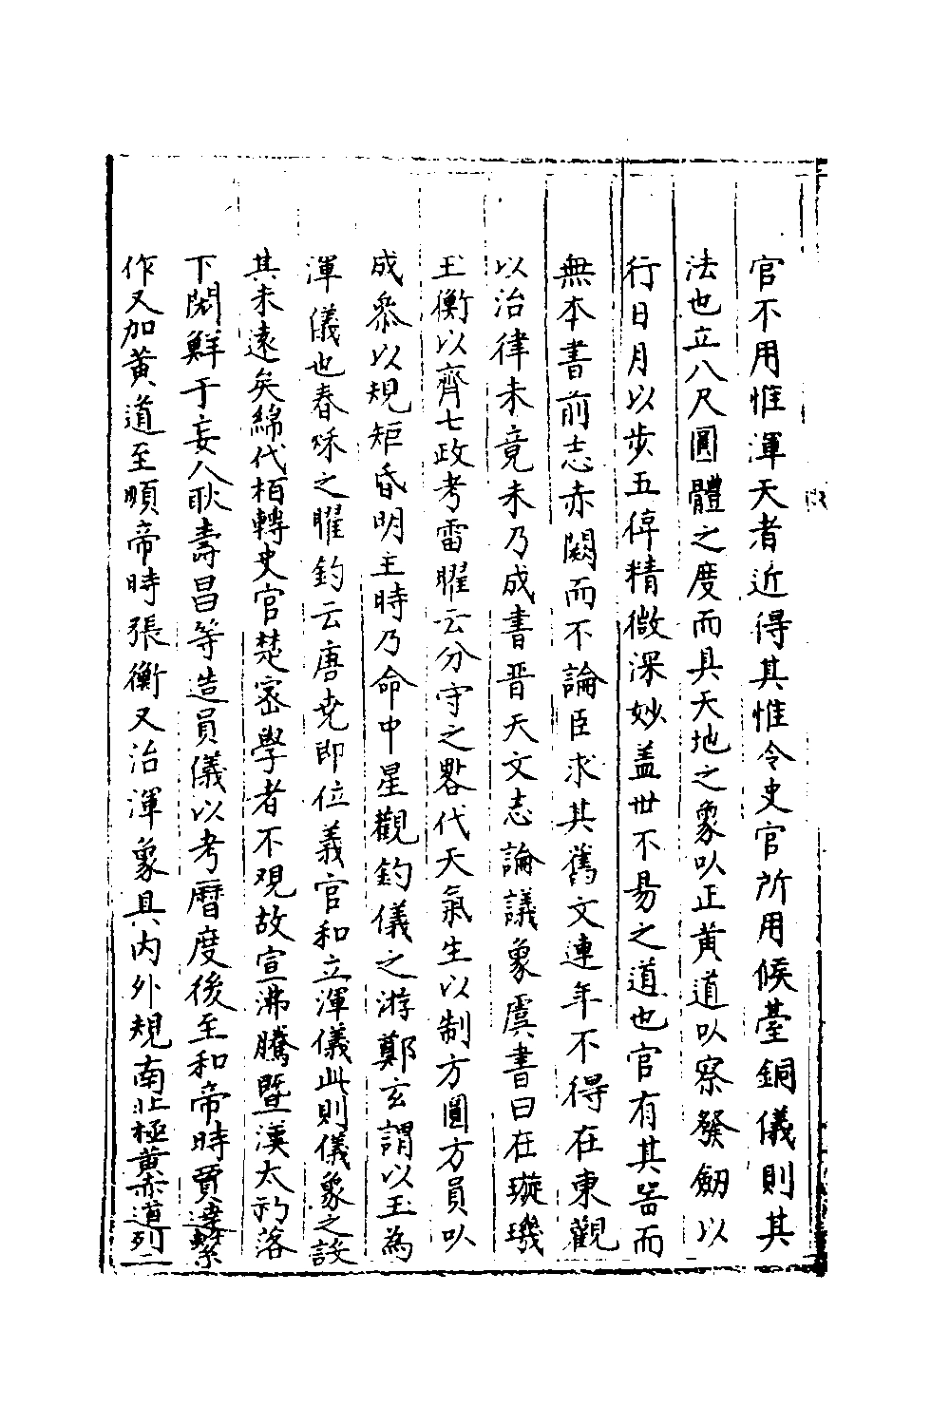 官不用惟渾天者近得其惟今史官所用候臺銅儀則其
法也立八尺圓體之度而具天地之象以正黄道以察發劒以
行日月以步五停精微深妙盖世不易之道也官有其噐而
無本書前志赤闕而不論臣求其舊文連年不得在東觀
以治律未竟未乃成書晋天文志論議象虞書曰在璇璣
玉衡以齊七政考雷曜云分守之畧代天氣生以制方圓方員以
成叅以規矩昏明主時乃命中星觀釣儀之游鄭玄謂以玉為
渾儀也春秌之曜釣云唐尭即位義官和立渾儀此則儀象之設
其未遠矣綿代栢轉史官楚宻學者不覌故宣沸騰曁漢太初落
下閎鮮于妄人耿壽昌等造員儀以考曆度後至和帝時賈逵繋
作又加黄道至順帝時張衡又治渾象具内外規南北極黄赤道列二